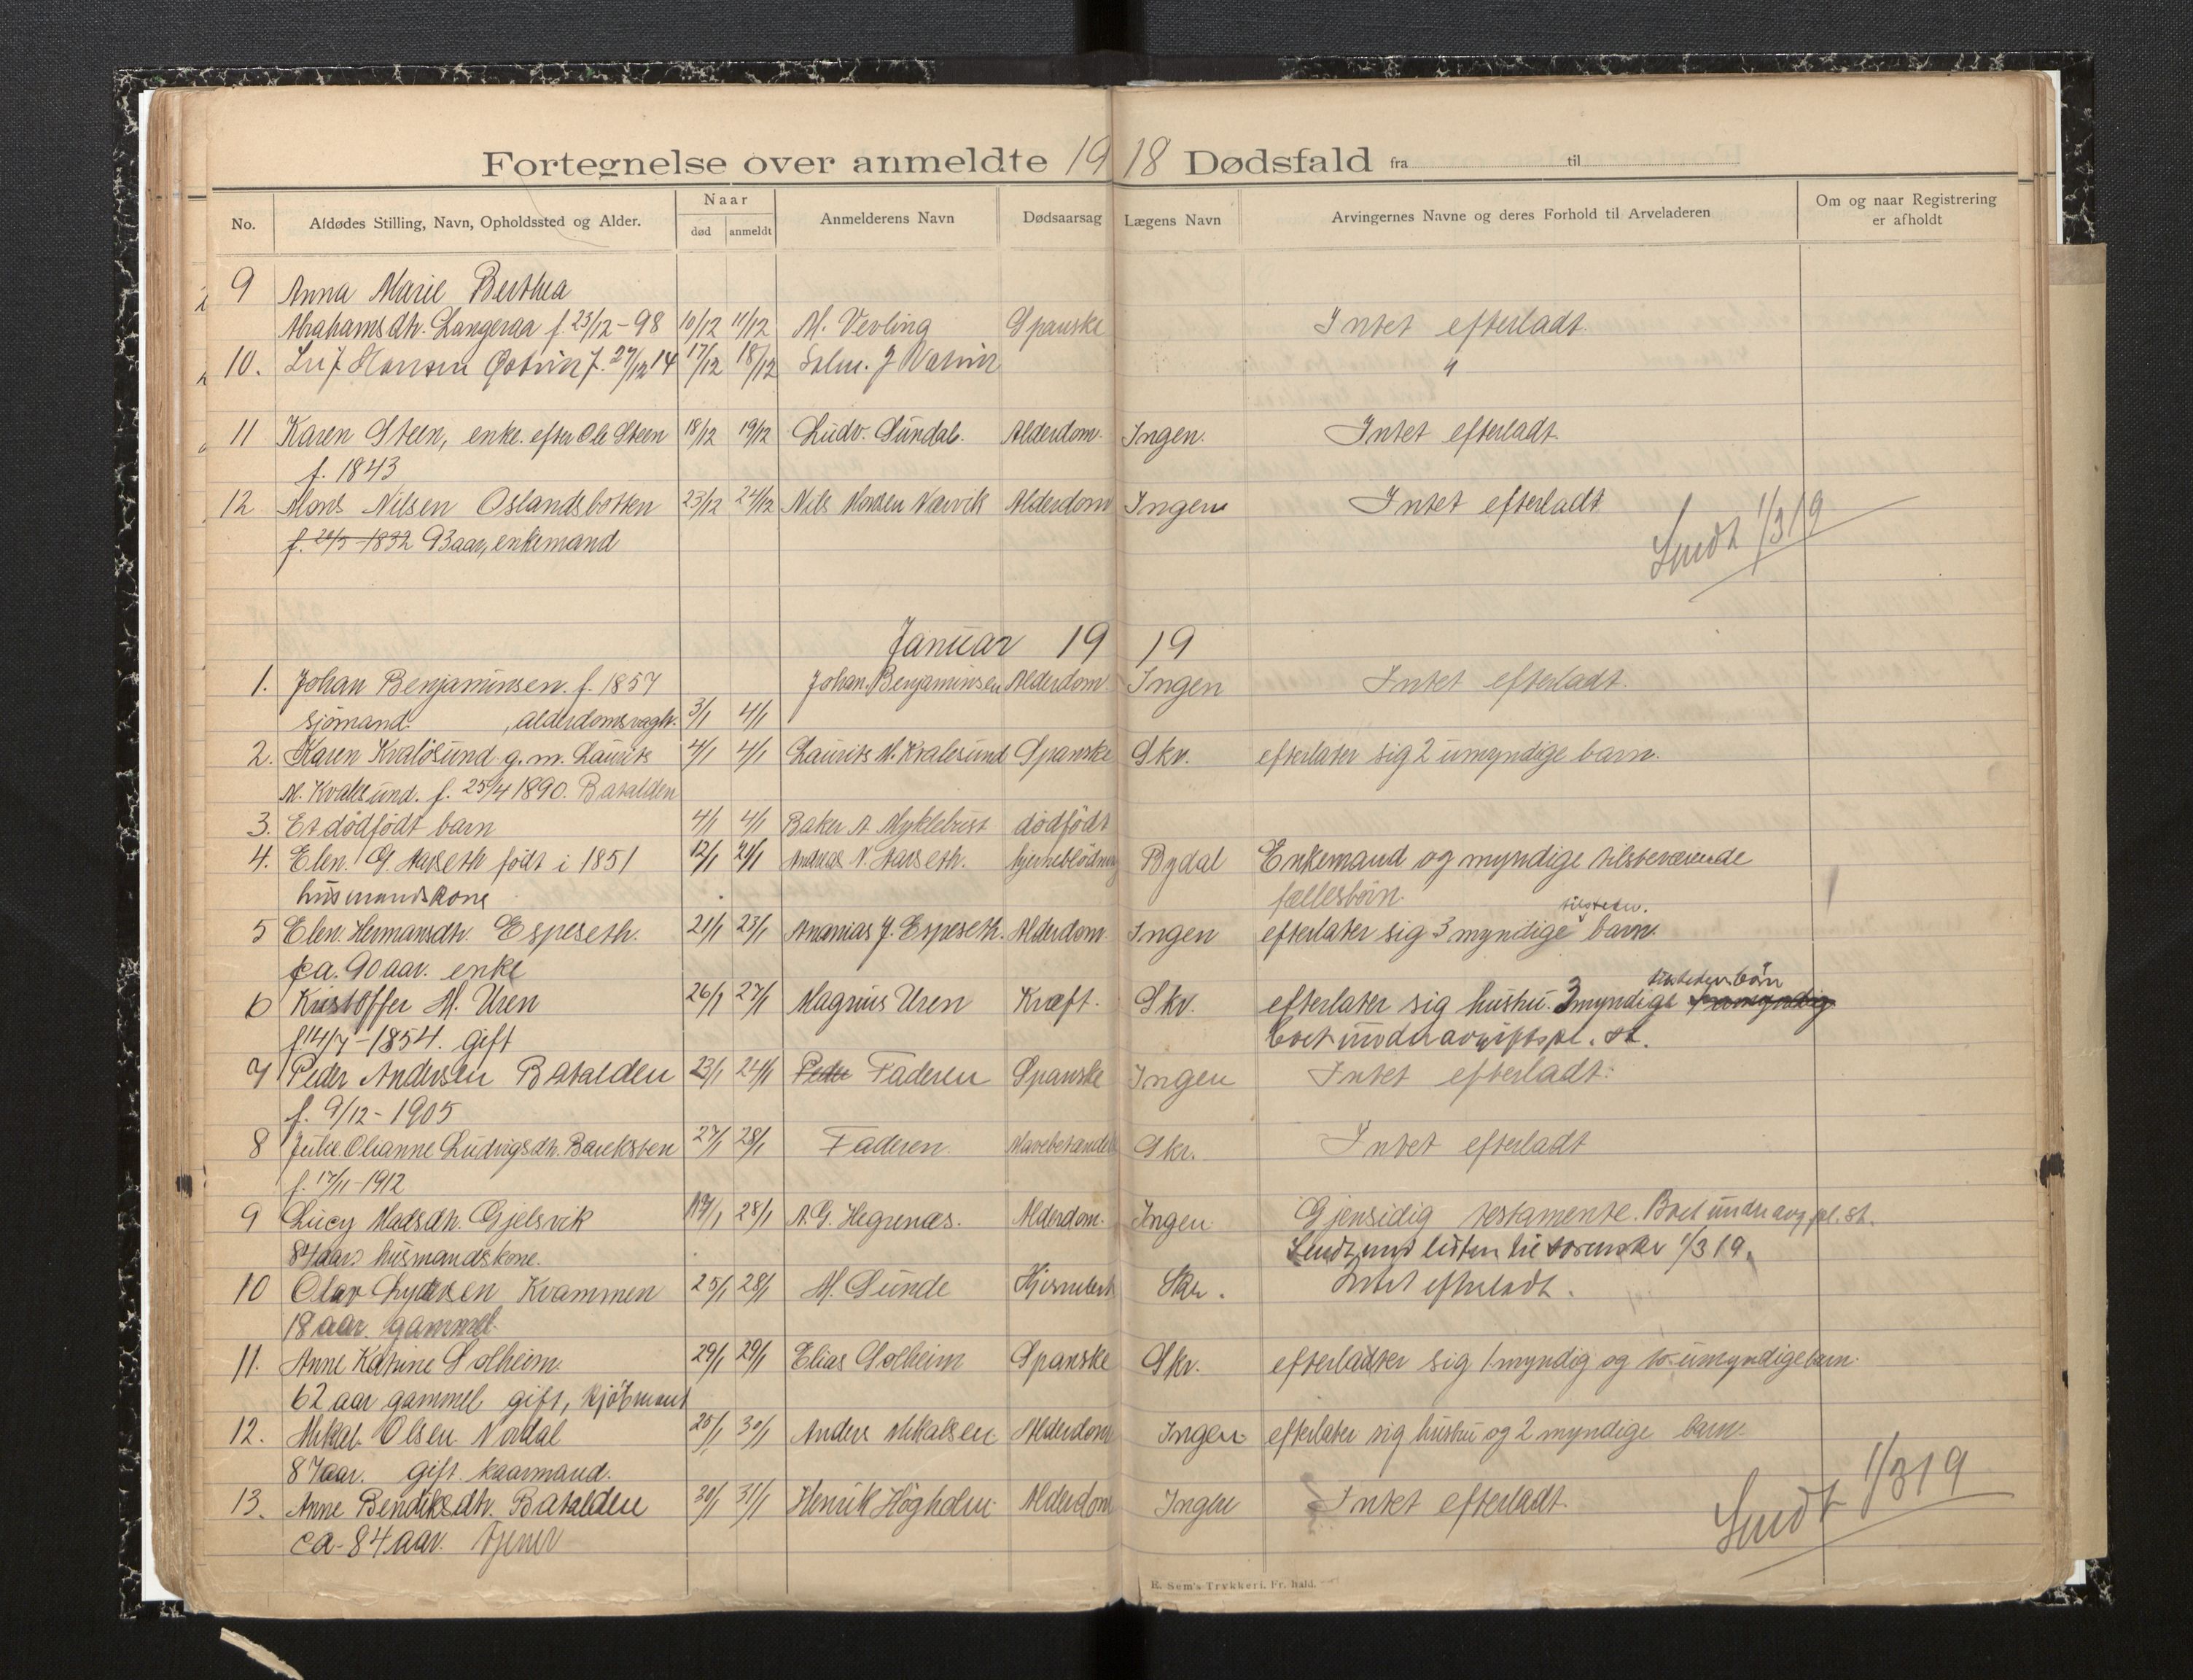 Fortegnelse over anmeldte 1918 Dødsfald fra til
No. Afdødes Stilling, Navn, Opholdssted og Alder. Naar Anmelderens Navn Dødsaarsag Lægens Navn Arvingernes Navne og deres Forhold til Arveladeren Om og naar Registrering
død anmeldt er afholdt
9 Anna Marie Berthea
Abrahamsdtr. Langeraa f. 23/12-98 10/12 11/12 M. Vevling Spanske Intet efterladt.
10. Hansen f. 27/12 14 17/12 18/12 "
11 Karen Steen, enke. efter Ole Steen 18/12 19/12 Ludv. Sundal. Alderdom. Ingen. Intet efterladt.
f. 1843
12 Mons Nilsen Oslandsbotten 23/12 24/12 Nils Monsen Nærvik Alderdom Ingen Intet efterladt
f. 20/5-1832 93 aar, enkemand
Sendt 1/3 19
Januar 1919
1. Johan Benjaminsen. f. 1857 Johan. Benjaminsen Alderdom Ingen Intet efterladt.
sjømand. , alderdomsvagh. 3/1 4/1
2. Karen Kvaløsund g. m. Laurits 4/1 4/1 Laurits M. Kvalesund Spanske Skr. efterlater sig 2 umyndige barn.
M. Kvalesund. f. 25/4 1890. Batalden
3. Et dødfødt barn 4/1 4/1 Baker A Myklebust dødfødt
4. Elen. G. Aarseth født i 1851 12/1 21/1 Andreas N. Aarseth. hjerneblødning Bydal Enkemand og myndige tilstevæiende
husmandskone fællesbørn.
5 Elen. Hermansdtr. Espeseth. 21/1 23/1 Ananias J. Espeseth. Alderdom. Ingen efterlater sig 3 myndige tilstedev. barn.
ca. 90 aar. enke
6 Kristoffer M. Uren 26/1 27/1 Magnus Uren Kræft. Skr. efterlater sig hustru. 3 myndige børn
f. 14/7-1854. gift boet under avgiftspl. st.
7 Peder Andersen Batalden 23/1 24/1 Peder Faderen Spanske Ingen Intet efterladt.
f. 9/12-1905
8 Julie. Olianne Ludvigsdtr. 27/1 28/1 Faderen. Skr. Intet efterladt
f. 17/11-1912
9 Lucy Madsdtr. Gjelsvik 17/1 28/1 A. G. Hegrenæs. Alderdom. Ingen Gjensidig testamente. Boet under avg. pl. st.
84 aar, husmandskone. Sendt med listen til sorenskr 1/3 19.
10 Olav Lydersen Kvammen 25/1 28/1 M. Sunde Skr. Intet efterladt.
18 aar. gammel.
11. Anne Katrine Solheim. 29/1 29/1 Elias Solheim Spanske Skr. efterlater sig 1 myndig og umyndige barn.
62 aar gammel gift, kjøbmand
12. Mikal. Olsen. Nordal 25/1 30/1 Anders Mikalsen. Alderdom Ingen efterlater sig hustru og 2 myndige barn.
87 aar. gift. kaarmand.
13. Anne Bendiksdtr. Batalden 30/1 31/1 Henrik Høgholm. Alderdom Ingen Intet efterladt.
ca. 84 aar.
Sendt 1/3 19
E. Sem's Trykkeri. Fr.hald.